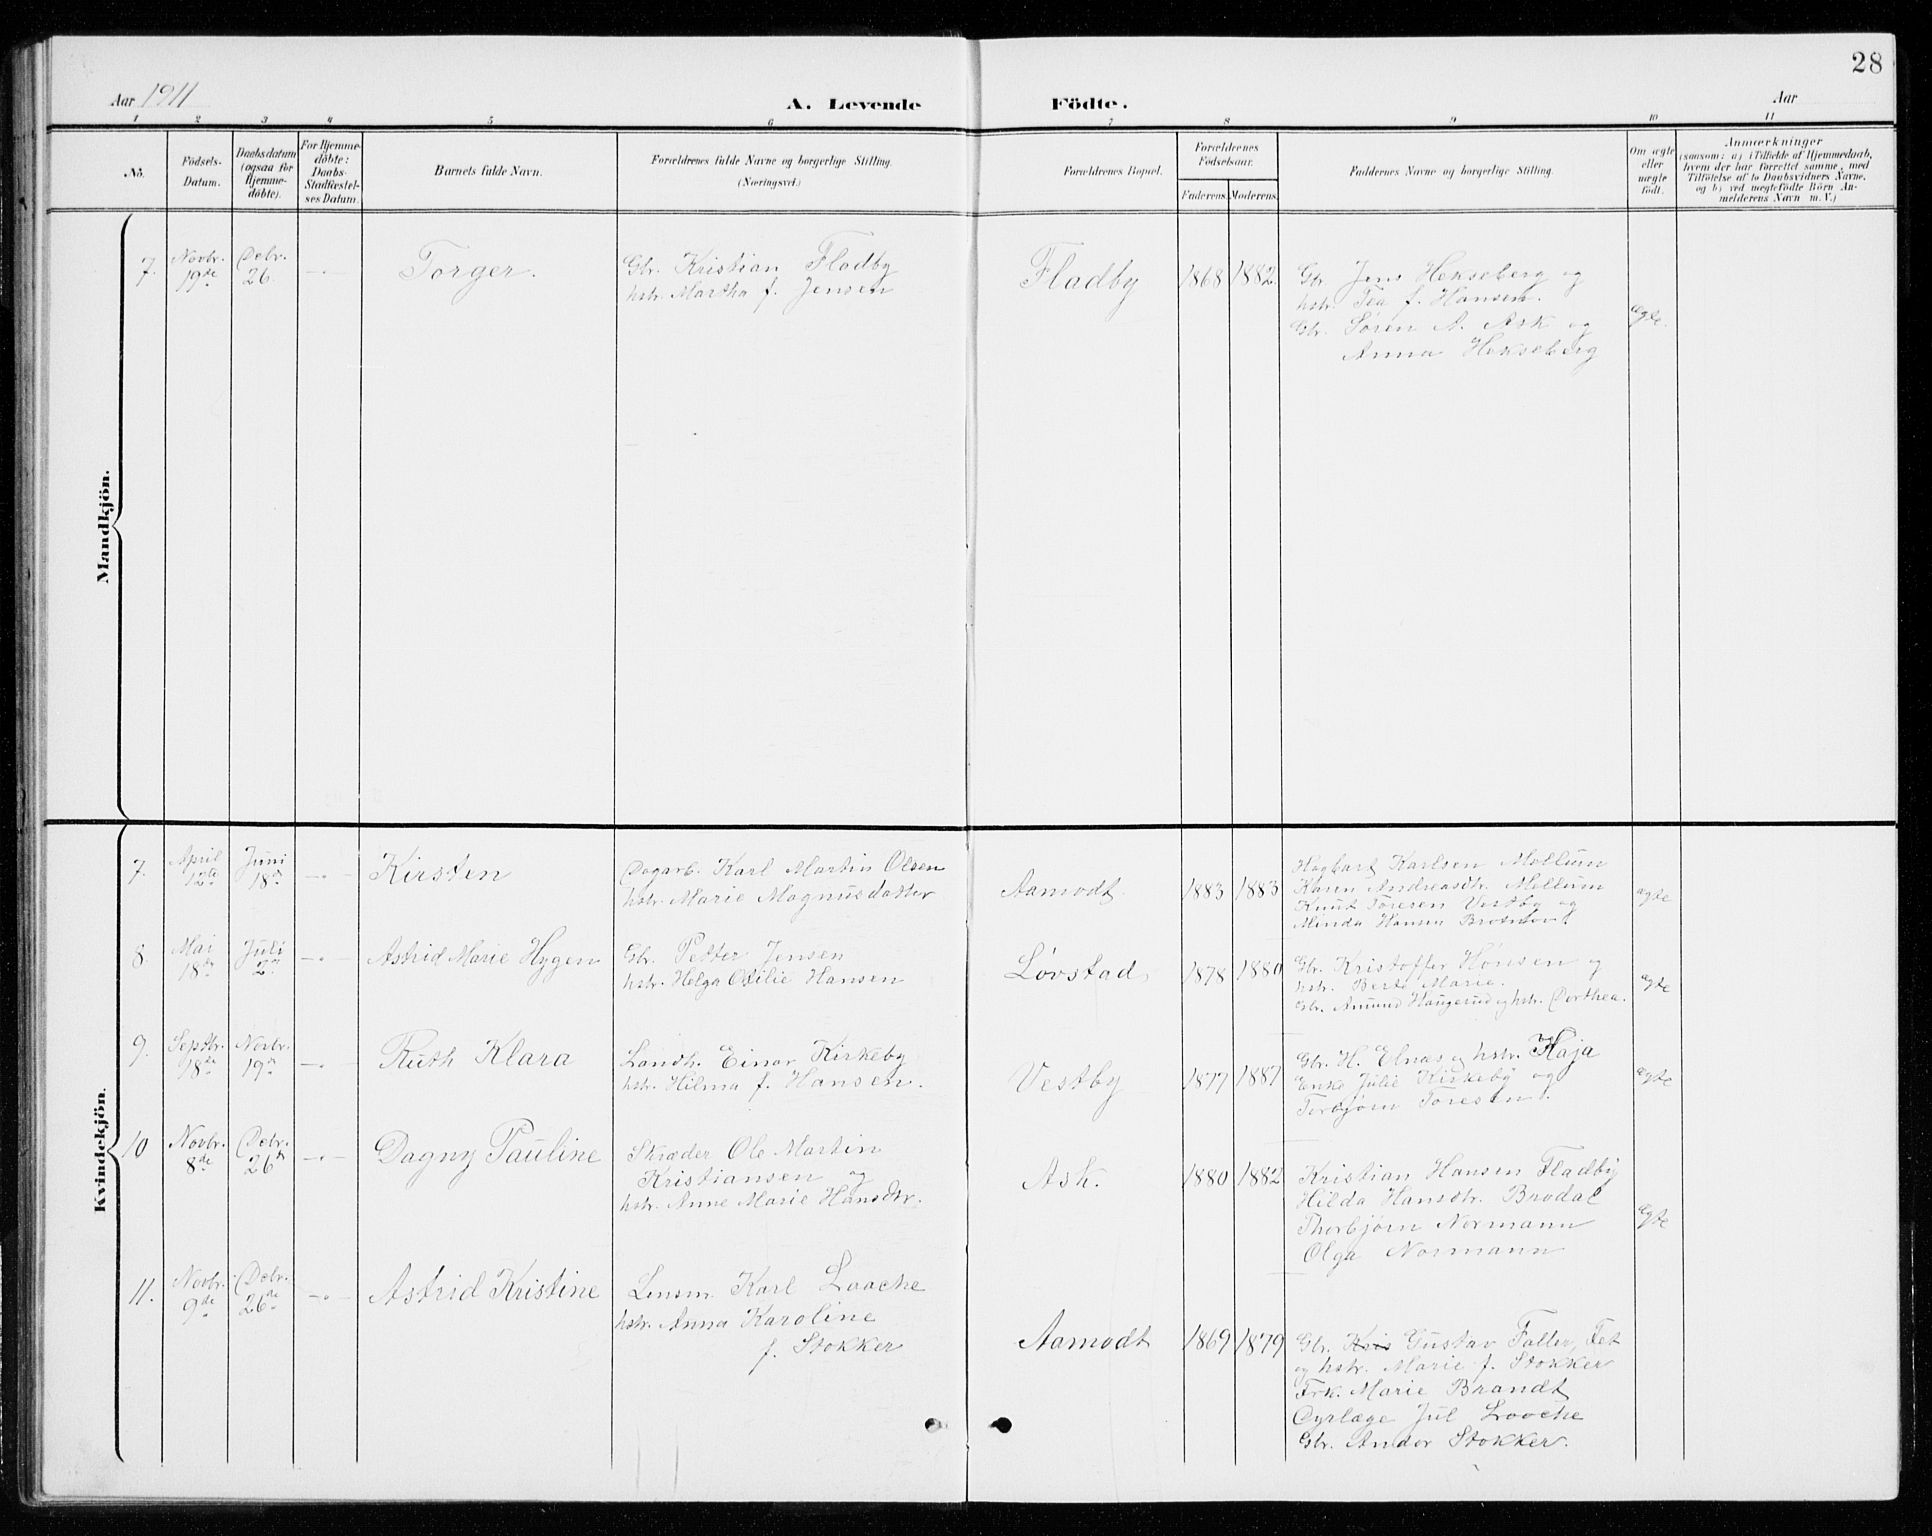 28
Aar 1911
A. Levende Födte.
Aar
1 2 3 4 5 6 7 8 9 10 11
No.
Födsels-
Datum.
Daabsdatum
(ogsaa for
Hjemme-
döbte).
For Hjemme-
döbte:
Daabs-
Stadfæstel-
ses Datum.
Barnets fulde Navn.
Forældrenes fulde Navne og borgerlige Stilling.
(Næringsvei.)
Forældrenes Bopæl.
Forældrenes
Födselsaar.
Faderens. Moderens.
Faddernes Navne og borgerlige Stilling.
Om ægte
eller
uægte
födt.
Anmærkninger
(saasom: a) i Tilfælde af Hjemmedaab,
hvem der har forrettet samme, med
Tilföielse af to Daabsvidners Navne,
og b) ved uægtefödte Börn An-
melderens Navn m. V.)
Mandkjön.
7.
Novbr.
19de
Debr.
26
Torger.
Gbr. Kristian Fladby
hstr. Martha f. Jensen
Fladby
1868
1882.
Gbr Jens Hekseberg og
hstr. Tea f. Hansen.
Gbr. Søren A. Ask og
Anna Hekseberg
ægte.
Kvindekjön.
7.
April
12te
Juni
18de
Kirsten
Dagarb. Karl Martin Olsen
hstr. Marie Magnusdatter
Aamodt
1883
1883
Hagbart Karlsen Mellum
Karen Andreasdtr. Mellum
Knut Toresen Vestby og
Minda Hansen
ægte
8.
Mai
18de
Juli
2den
Astrid Marie Hygen
Gbr. Petter Jensen
hstr. Helga Otilie Hansen
Løvstad
1878
1880
Gbr. Kristoffer Hansen og
hstr. Berte Marie.
Gbr. Amund Haugerud og hstr. Dorthea.
ægte
9.
Septbr.
18de
Novbr.
19de
Ruth Klara
Landh. Einar Kirkeby
hstr. Hilma f. Hansen.
Vestby
1877
1887
Gbr. H. Elnæs og hstr. Kaja
Enke Julie Kirkeby og
Torbjørn Toresen.
ægte
10
Novbr.
8de
Debr.
26de
Dagny Pauline
Skræder Ole Martin
Kristiansen og
hstr. Anne Marie Hansdtr.
Ask.
1880
1882
Kristian Hansen Fladby
Hilda Hansdtr. Brodal
Thorbjørn Normann
Olga Normann
ægte
11.
Novbr.
9de
Debr.
26de
Astrid Kristine
Lensm. Karl Laache
hstr. Anna Karoline
f. Stokker
Aamodt
1869
1879
Gbr. Kris Gustav Faller, Fet
og hstr. Marie f. Stokker
Frk. Marie Brandt
Dyrlæge Jul Laache
Gbr. Andor Stokker.